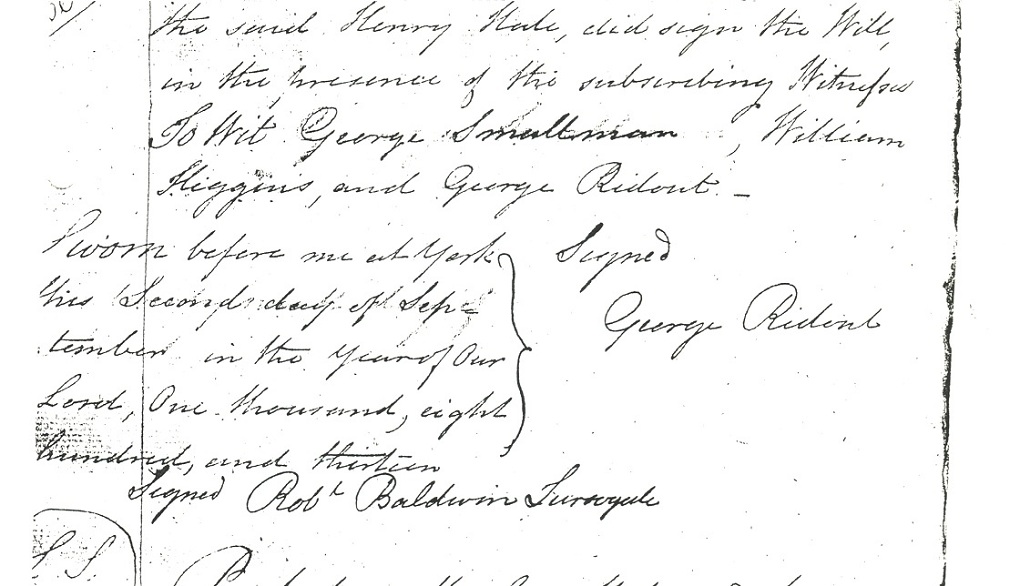 the said Henry Hale, did sign the Will,
in the presence of the subscribing Witnesses
To Wit George Smallman, William
Higgins, and George Ridout. –
Sworn before me at York
this Second day of Sep=
tember in the Year of Our
Lord, One thousand, eight
hundred, and thirteen
Signed
George Ridout
Signed Robt Baldwin Surrogate
L. S.